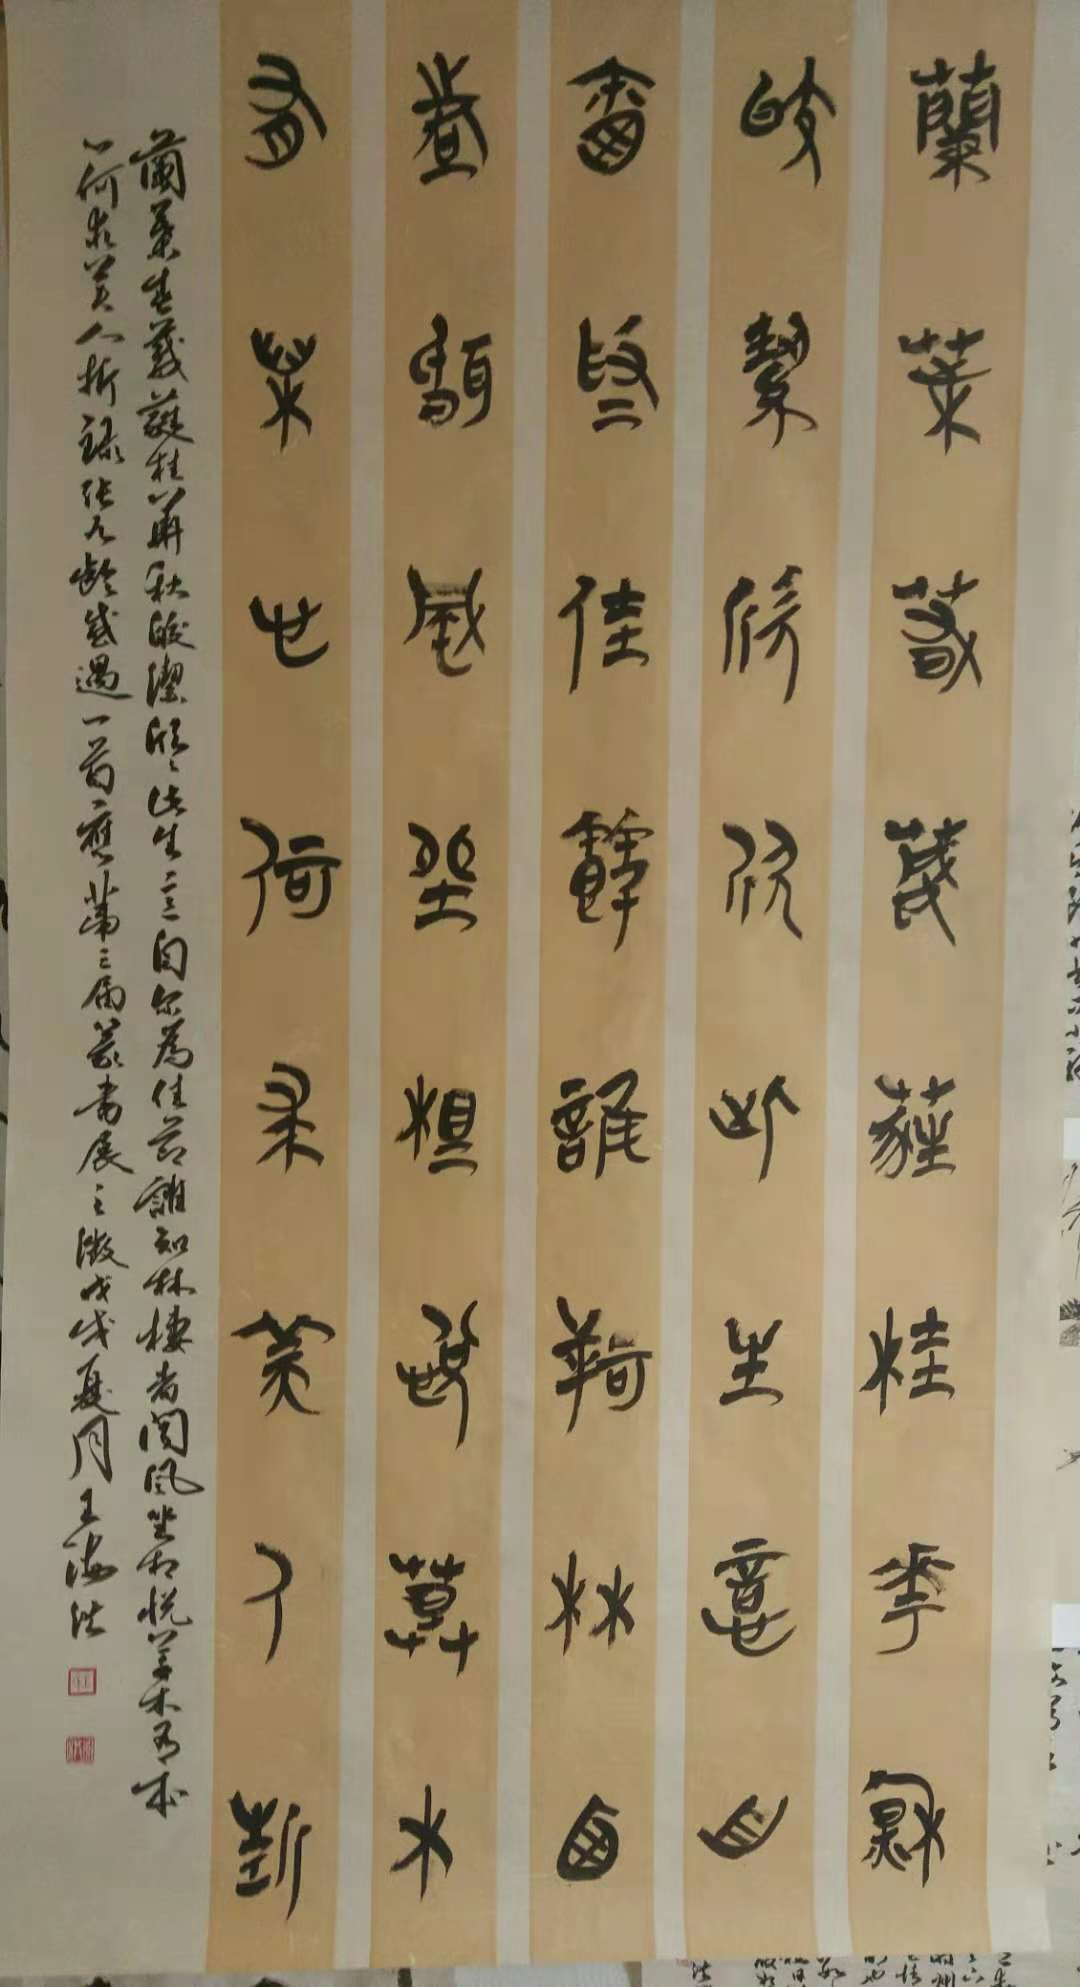 蘭葉春葳蕤桂華秋
皎絜欣欣此生意自
爾為佳節誰知林棲
者聞風坐相悅草木
有本心何求美人折
蘭葉春葳蕤桂華秋皎潔欣〻此生意自尔為佳節誰知林棲者聞風坐相悅草木有本
心何求美人折錄張九齡感遇一首應第三屆篆書展之徵戊戌夏月王海